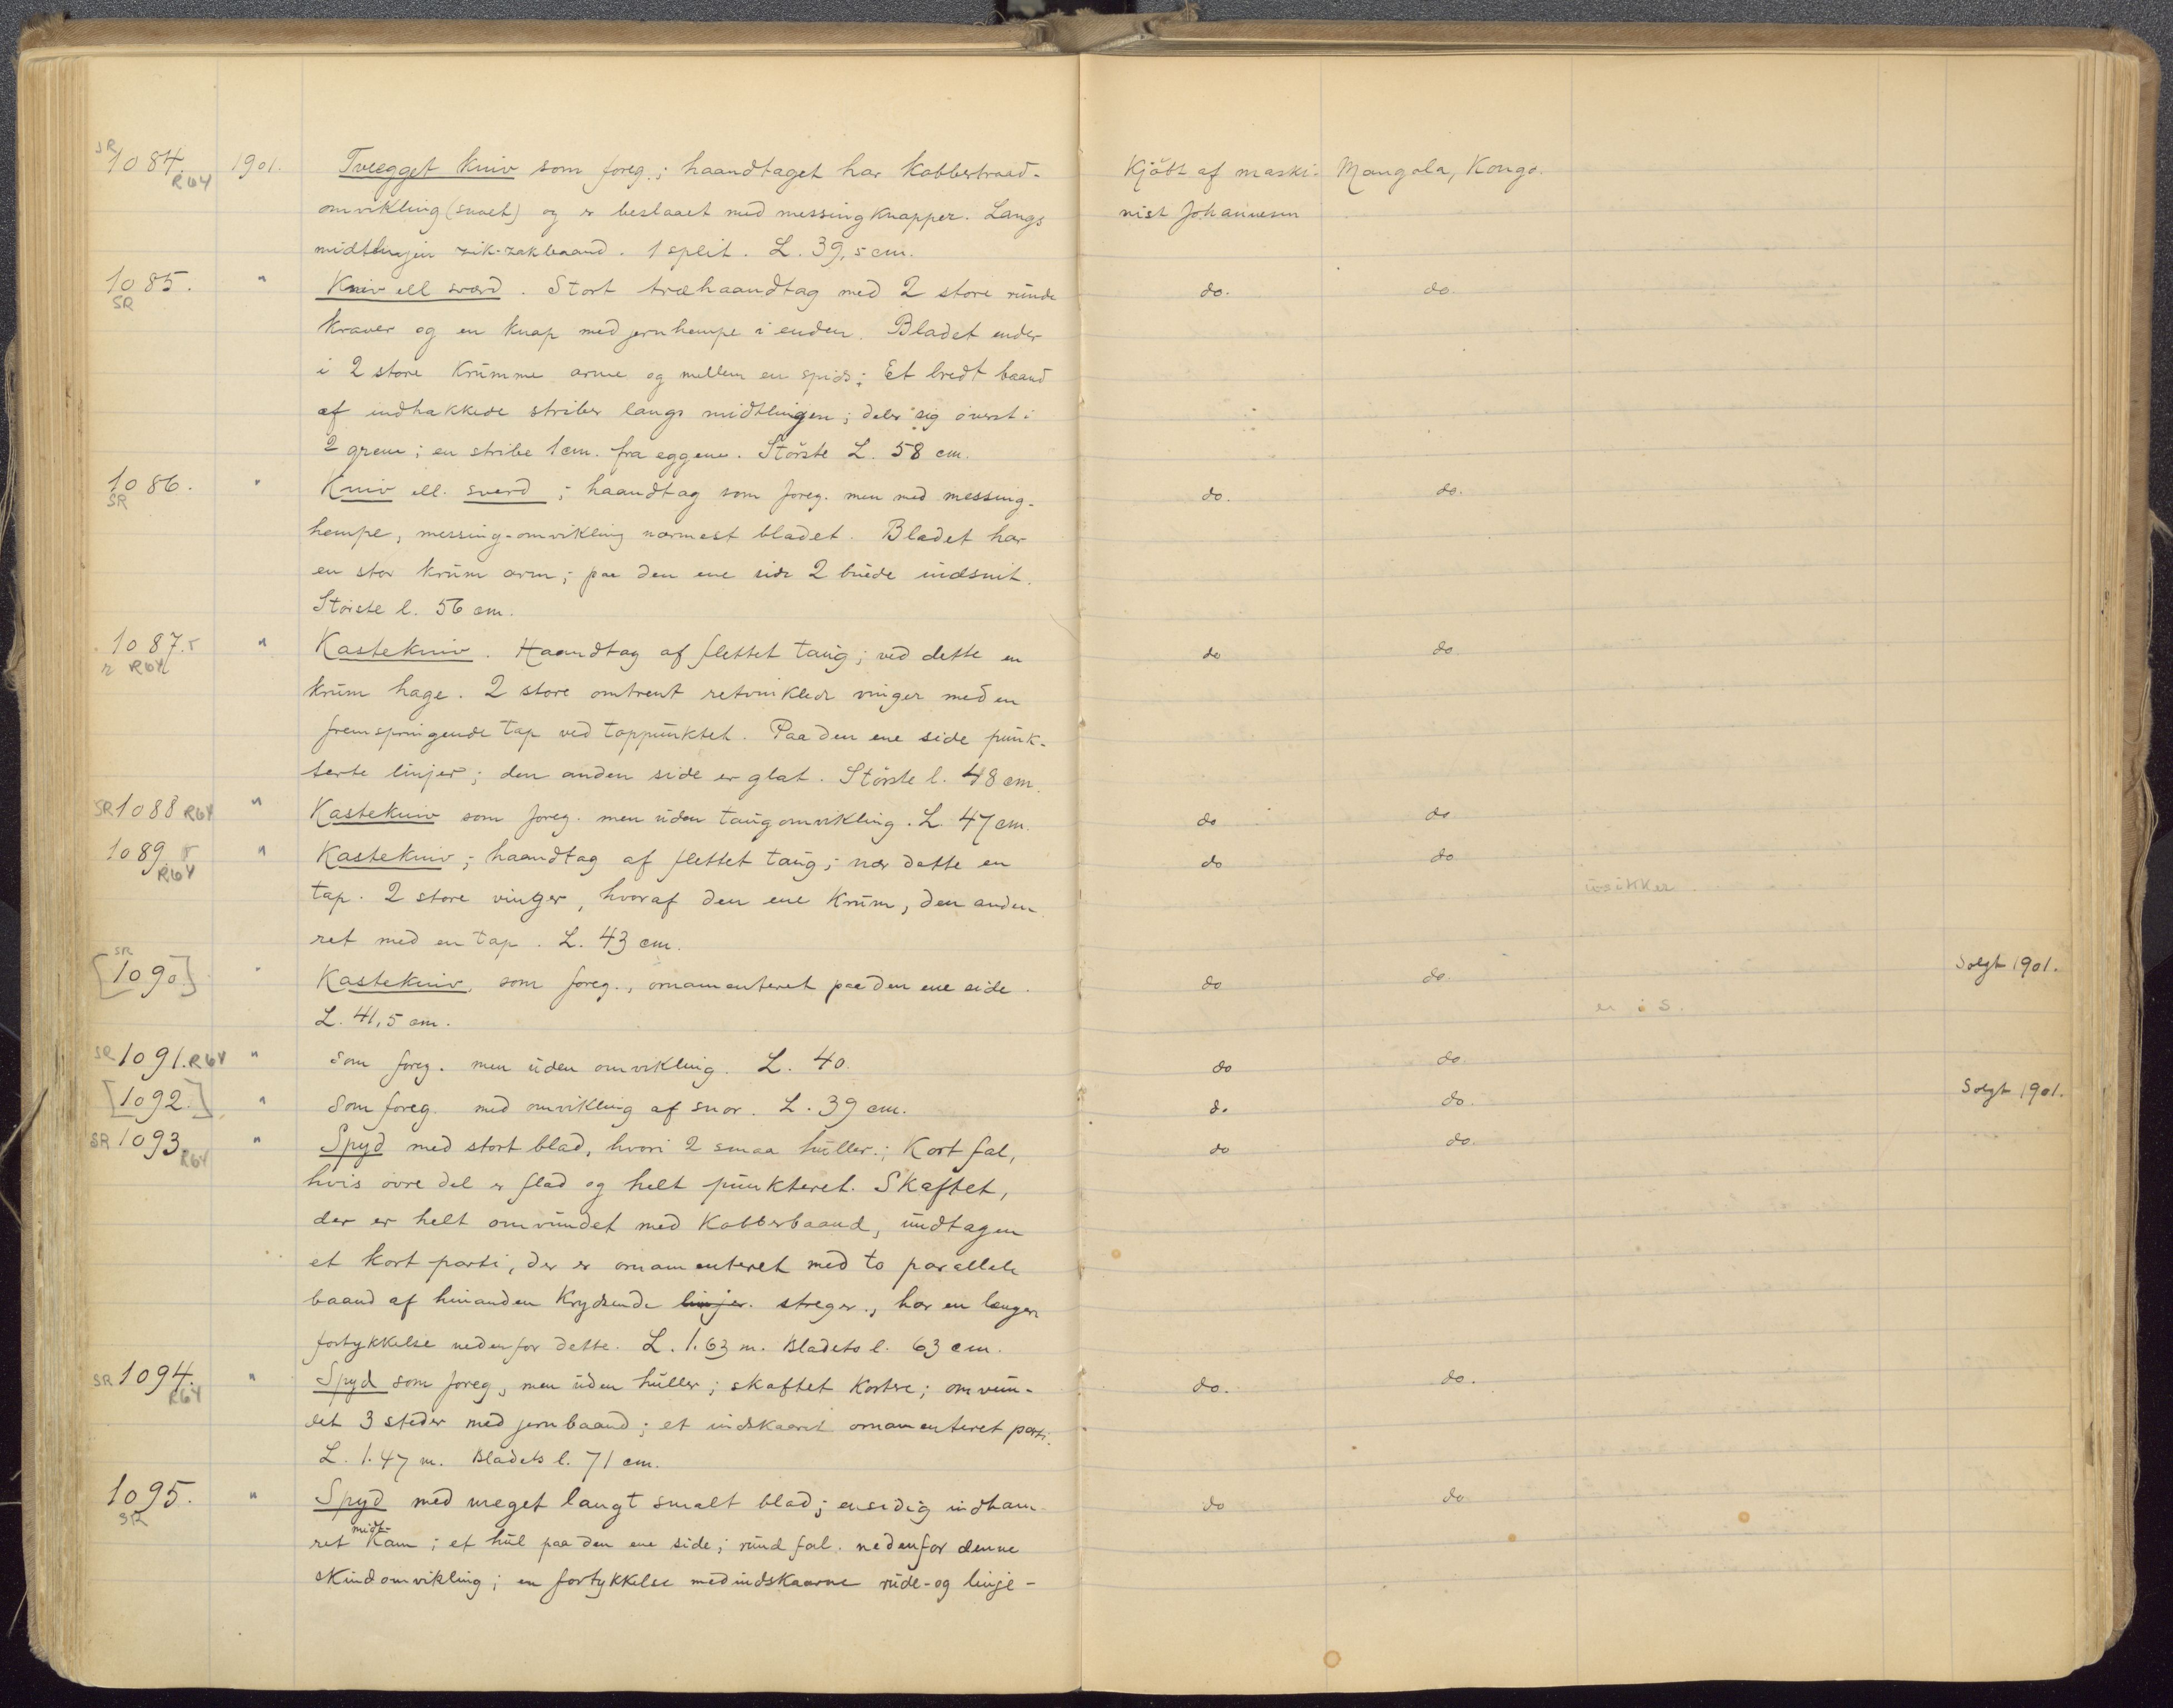 SR 1084. R64 1901. Tveegget kniv som foreg.; haandtaget har kobbertraad- Kjöbt af maski- Mangala, Kongo.
omvikling (snoet) og er beslaaet med messingknapper. Langs nist Johannesen
midtlinjen zik-zakbaand. 1 split. L. 39,5 cm.
1085. SR " Kniv ell sværd. Stort træhaandtag med 2 store runde do. do.
kraver og en knap med jernhempe i enden. Bladet ender
i 2 store krumme arme og mellem en spids; Et bredt baand
af indhakkede striber langs midtlinjen; deler sig överst i
2 grene; en stribe 1 cm. fra eggene. Störste L. 58 cm.
1086. SR " Kniv ell. sværd; haandtag som foreg. men med messing- do. do.
hempe, messing-omvikling nærmest bladet. Bladet har
en stor krum arm; paa den ene side 2 buede indsnit.
Störste l. 56 cm.
1087. R64 " Kastekniv. Haandtag af flettet taug; ved dette en do do
krum hage. 2 store omtrent retvinklede vinger med en
fremspringende tap ved toppunktet. Paa den ene side punk-
terte linjer; den anden side er glat. Störste l. 48 cm.
SR 1088 R64 " Kastekniv som foreg. men uden taugomvikling. L. 47 cm. do do
1089 R64 " Kastekniv; haandtag af flettet taug; nær dette en do do
tap. 2 store vinger, hvoraf den ene krum, den anden usikker
ret med en tap. L. 43 cm.
SR [1090] " Kastekniv, som foreg., ornamenteret paa den ene side. do do Solgt 1901.
L. 41,5 cm. er i S.
SR 1091. R64 " Som foreg. men uden omvikling. L. 40. do do
[1092.] " Som foreg. med omvikling af snor. L. 39 cm. do do. Solgt 1901.
SR 1093. R64 " Spyd med stort blad, hvori 2 smaa huller.; Kort fal, do do.
hvis övre del er flad og helt punkteret. Skaftet,
der er helt omvundet med kobberbaand, undtagen
et kort parti, der er ornamenteret med to parallele
baand af hinanden krydsende linjer. streger., har en længere
fortykkelse nedenfor dette. L. 1.63 m. Bladets l. 63 cm.
SR 1094. R64 " Spyd som foreg, men uden huller; skaftet kortere; omvun- do. do.
det 3 steder med jernbaand; et indskaaret ornamenteret parti.
L. 1.47 m. Bladets l. 71 cm.
1095. SR " Spyd med meget langt smalt blad; ensidig indham- do do
ret midt-kam; et hul paa den ene side; rund fal. nedenfor denne
skindomvikling; en fortykkelse med indskaarne rude- og linje-